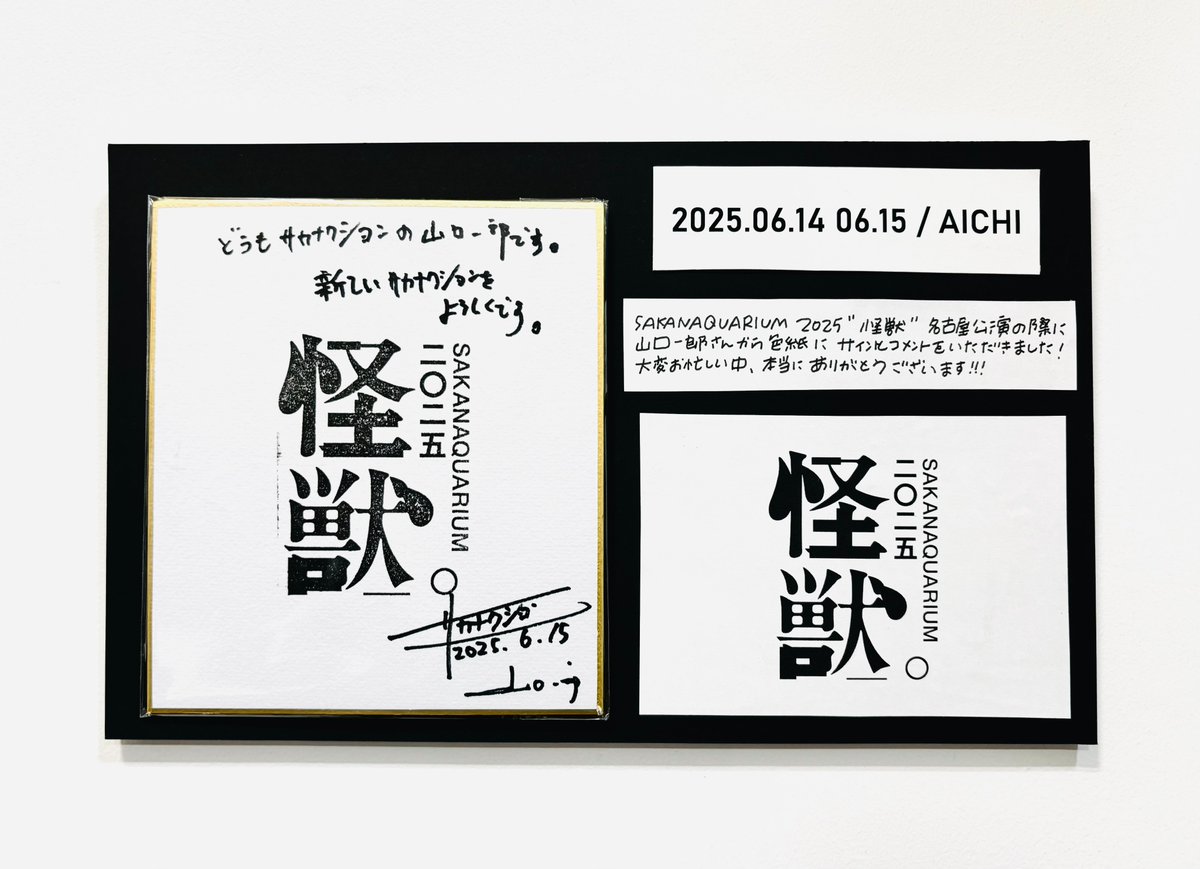 どうもサカナクションの山口一郎です。
新しいサカナクションを
よろしくです。
怪獣
二〇二五
SAKANAQUARIUM
サカナクション
2025.6.15
2025.06.14 06.15 / AICHI
SAKANAQUARIUM 2025 "怪獣" 名古屋公演の際に
山口一郎さんから色紙に サインとコメントをいただきました!
大変お忙しい中、本当に ありがとうございます!!!
怪獣
二〇二五
SAKANAQUARIUM